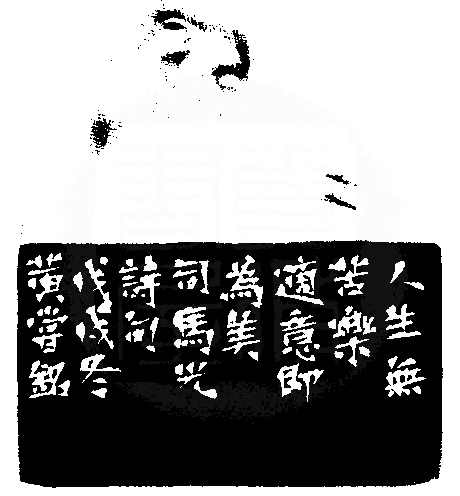 人生無
苦樂
適意即
為美
司馬光
詩句
戊戌冬
黃嘗銘